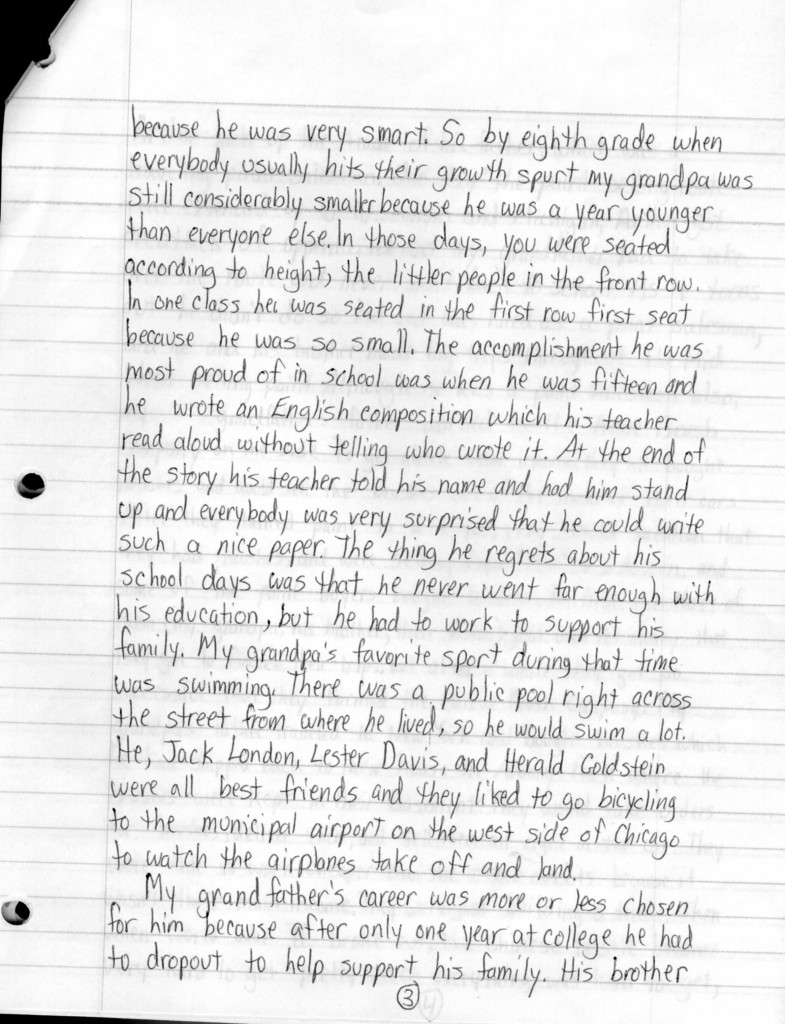 because he was very smart. So by eighth grade when
everybody usually hits their growth spurt my grandpa was
still considerably smaller because he was a year younger
than everyone else. In those days, you were seated
according to height, the littler people in the front row.
In one class he was seated in the first row first seat
because he was so small. The accomplishment he was
most proud of in school was when he was fifteen and
he wrote an English composition which his teacher
read aloud without telling who wrote it. At the end of
the story his teacher told his name and had him stand
up and everybody was very surprised that he could write
such a nice paper. The thing he regrets about his
school days was that he never went far enough with
his education, but he had to work to support his
family. My grandpa's favorite sport during that time
was swimming. There was a public pool right across
the street from where he lived, so he would swim a lot.
He, Jack London, Lester Davis, and Herald Goldstein
were all best friends and they liked to go bicycling
to the municipal airport on the west side of Chicago
to watch the airplanes take off and land.
My grandfather's career was more or less chosen
for him because after only one year at college he had
to dropout to help support his family. His brother
3